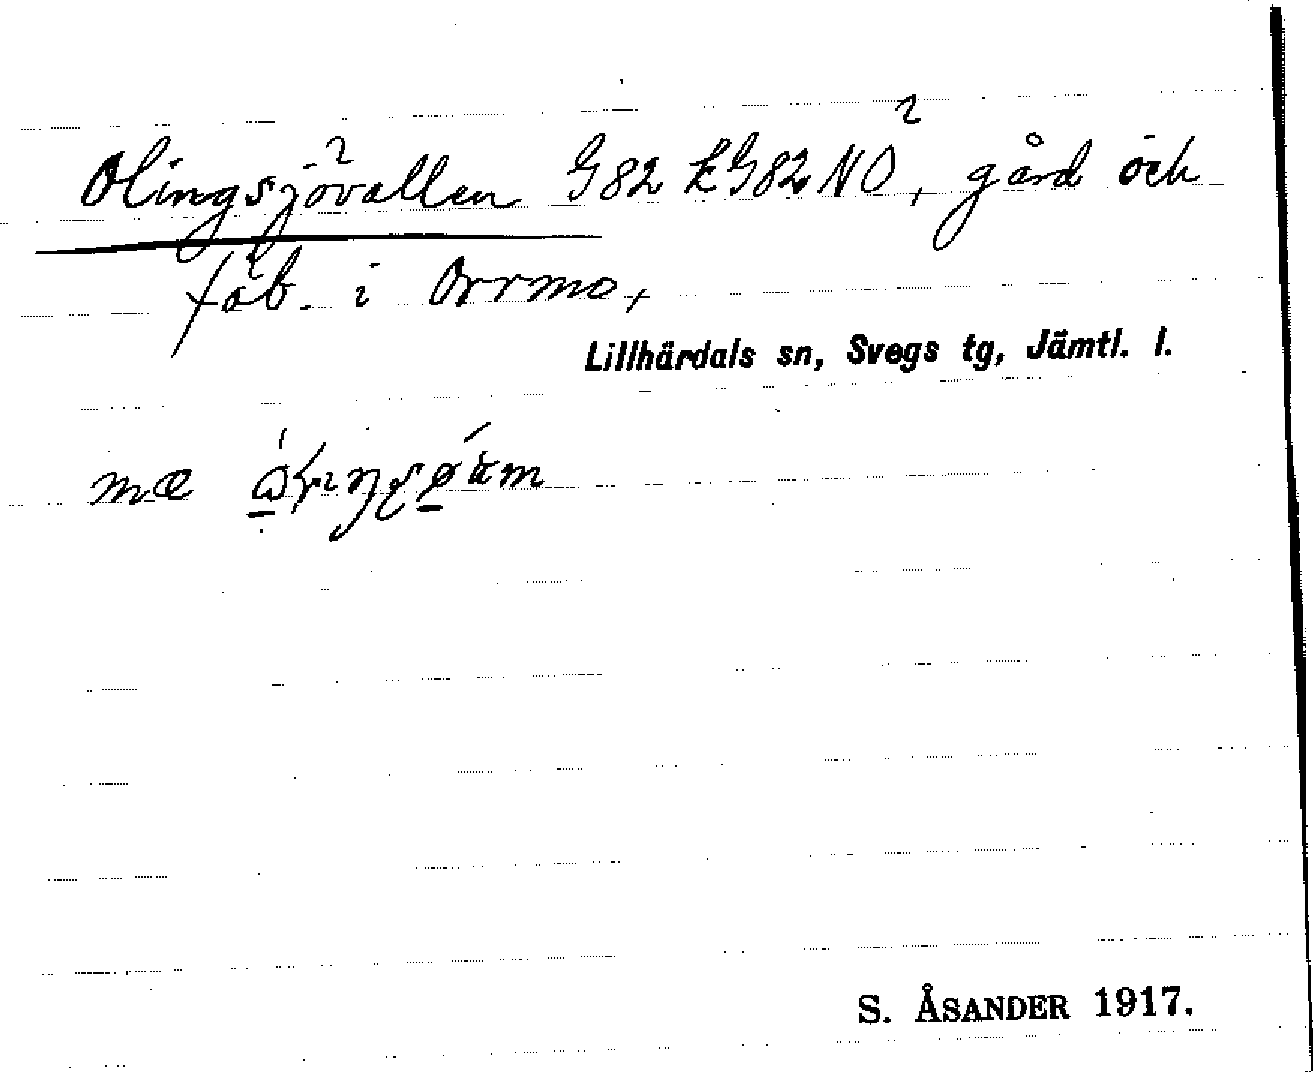 Olingsjövallen G82 kG82NO², gård och
fäb. i Orrmo,
Lillhärdals sn, Svegs tg, Jämtl. l.
mæ
S. ÅSANDER 1917.